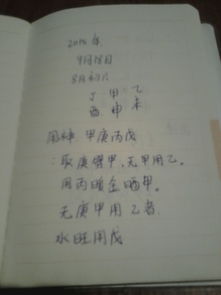 2015年
9月18日
8月初六
丁 甲 乙
酉 申 未
用神 甲庚丙戊
:取庚劈甲,无甲用乙.
用丙暖金晒甲.
无庚甲用乙者.
水旺用戊